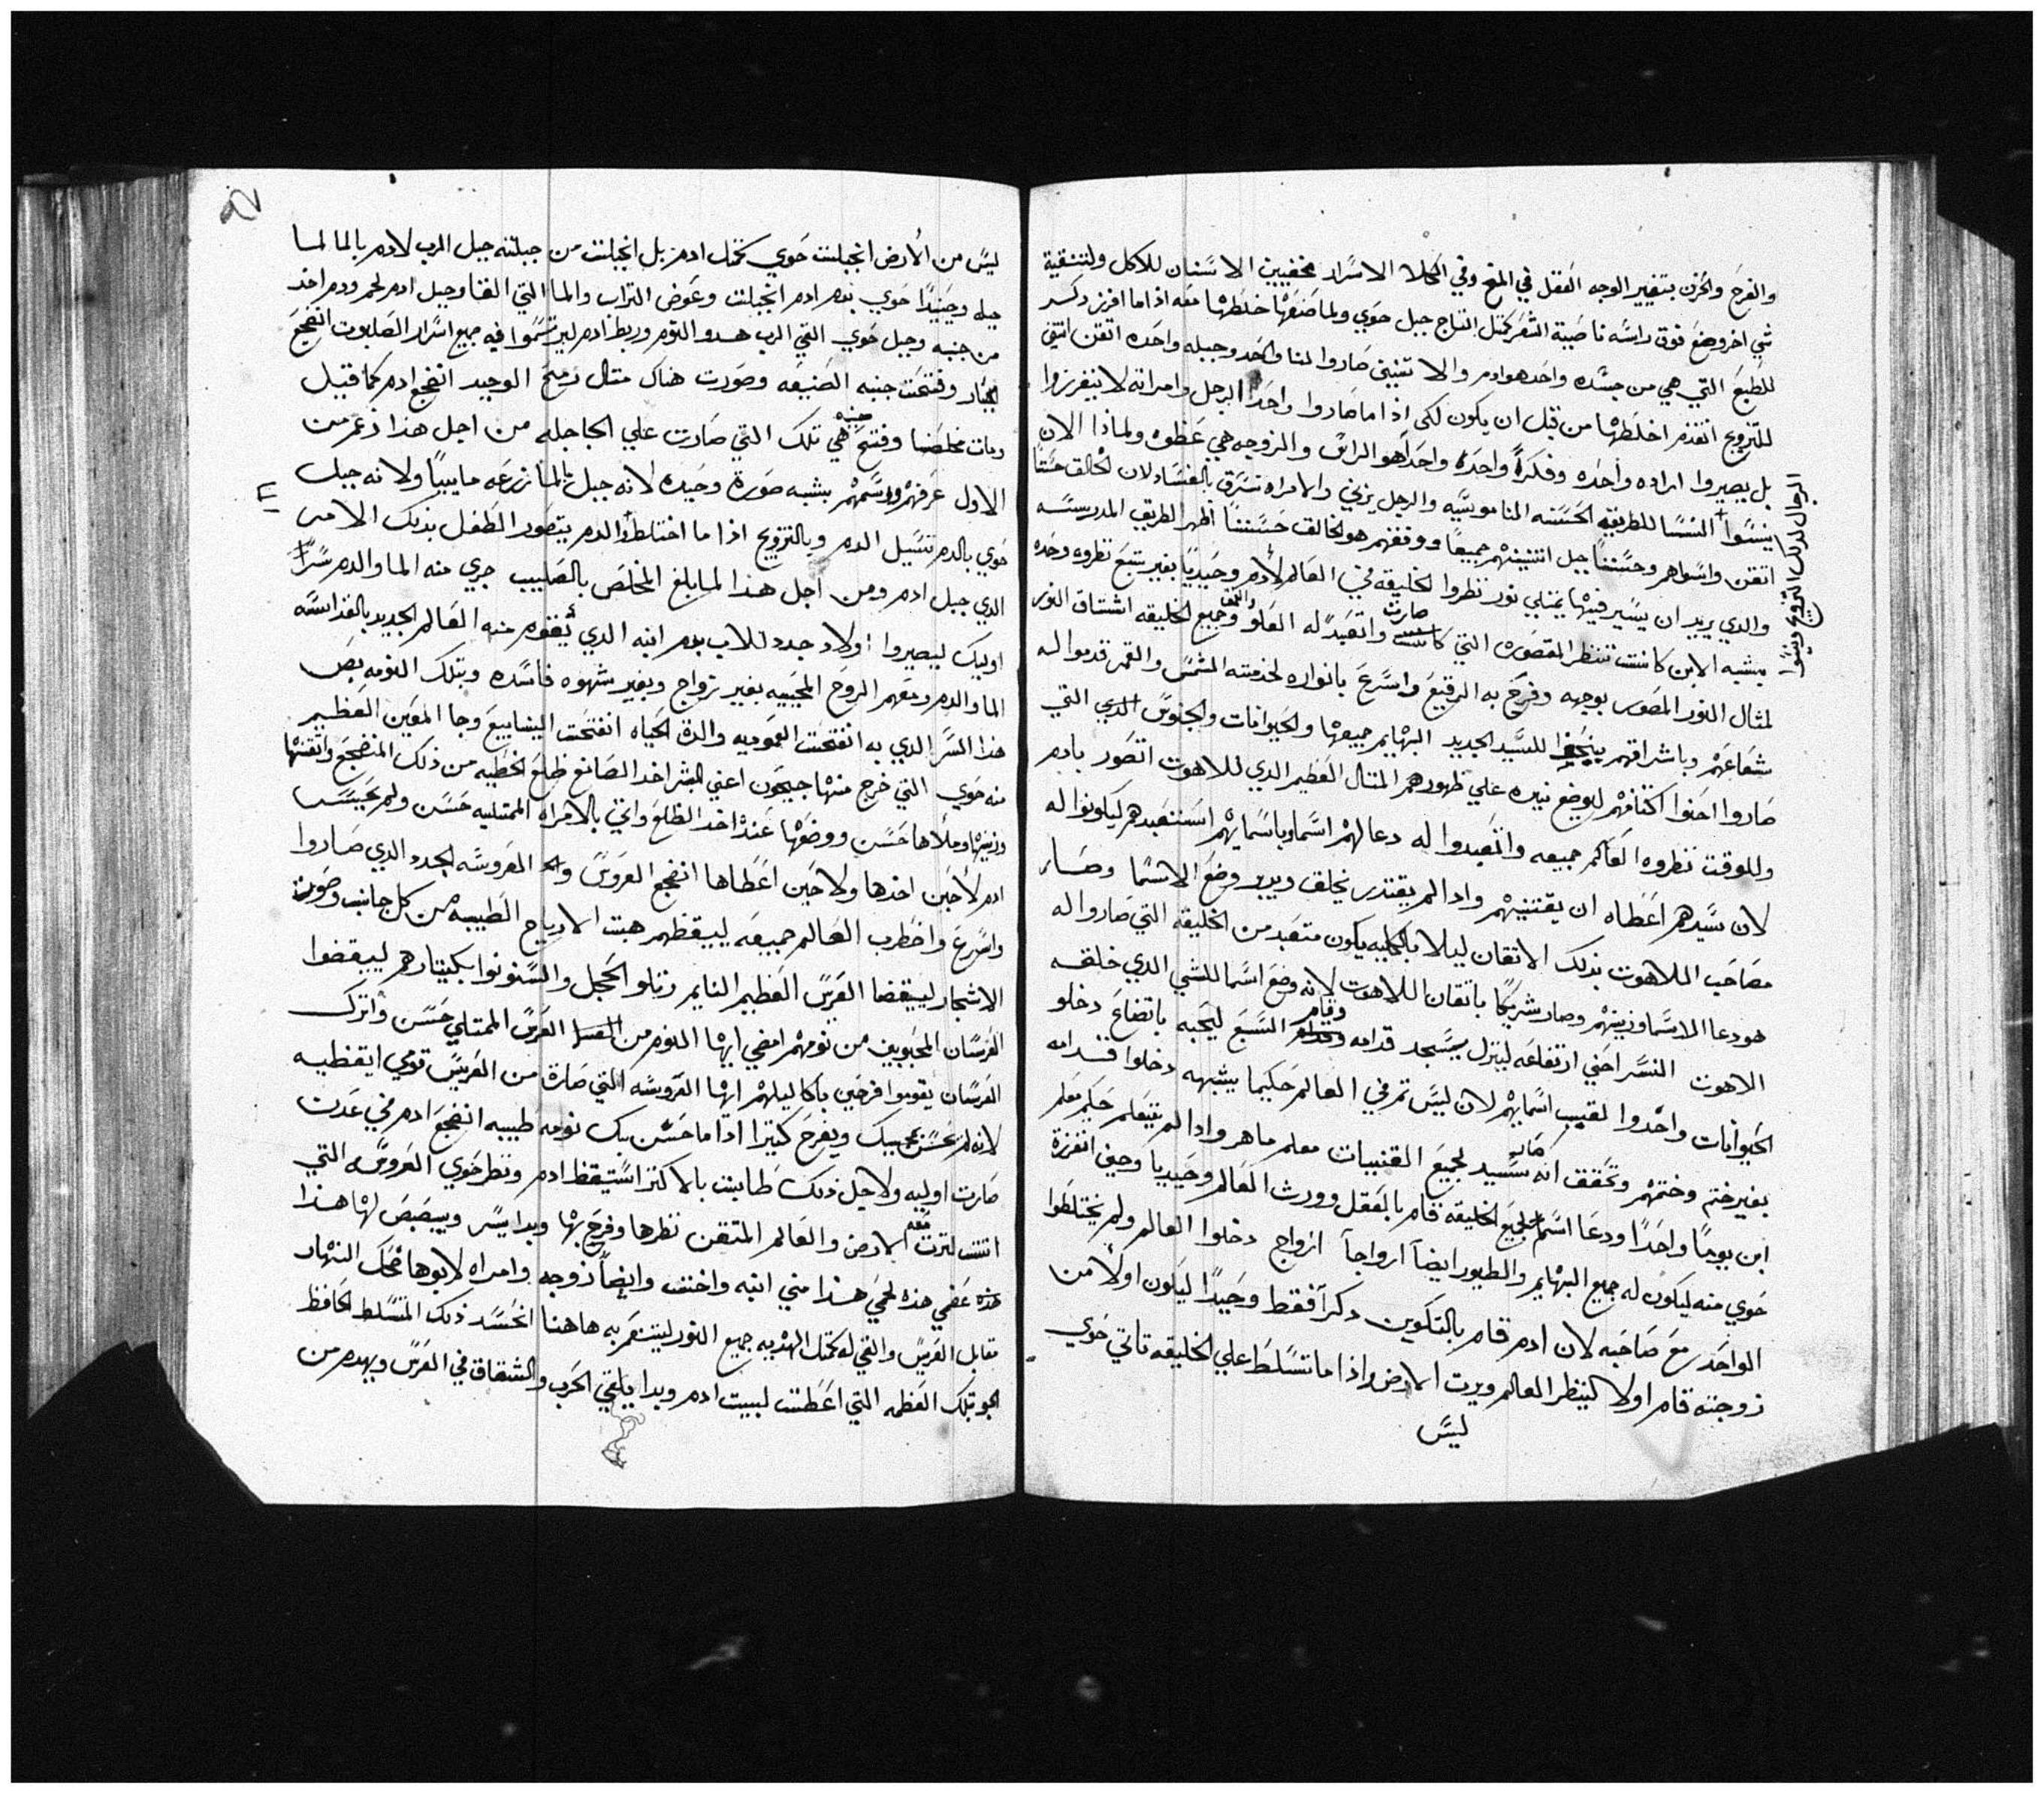 والفرح والحزن بتغيير الوجه العقل في المخ وفي الكلا الاسرار مخفيين الاسنان للاكل ولتنقية
شي اخر وضع فوق راسه ناصية الشعر كمثل التاج جبل حوي ولما صنعها خلطها معه اذا ما افرز ذكر
للطبع التي هي من جسده واحد هو ادم والا تنيني صاروا لنا واحد وجبله واحده اتقن اثنين
للتزويج اتقنهم اخلطها من قبل ان يكون لكي اذا ما صاروا واحدا الرجل وامراته لا ينفرزوا
بل يصيروا اراده واحده وفكرة واحده واحدا هو الراس والزوجه هي عظمه ولماذا الان
ينسوا النسا للطريقه الحسنه الناموسيه والرجل يزني والامراه تسرق بالفساد لان الخالق حسنا
الرجال لدلك التزويج ونسوا
اتقن واسواهم وحسننا جبل اثنينهم جميعا ووقفهم هو الخالق حسننا اظهر الطريق المدرسه
والدي يريد ان يسير فيها يمتلي نور نظروا الخليقه في العالم لادم وحيديا بغير تتبع نظروه وحده
بشبه الابن كانت تنتظر المقصوره التي صارت واتعبد له العلو والعمق وجميع الخليقه اشتاق النور
لمثال النور المصور بوجهه وفرح به الرقيع واسرع بانواره لخدمته الشمس والقمر قدموا له
شعاعهم وباشراقهم للسيد الجديد البهايم جميعها والحيوانات والجنوس التي
صاروا احنوا اكتافهم ليوضع نيره علي ظهورهم المثال العظيم الدي للاهوت اتصور بادم
وللوقت نظروه العالم جميعه واتعبدوا له دعا لهم اسما وباسمايهم استنعبدهم ليكونوا له
لان سيدهم اعطاه ان يقتنيهم وادا لم يقتدر يخلق ويدبر وضع الاسما وصار
مصاحب اللاهوت بذلك الاتقان ليلا بالكليه يكون متعبد من الخليقه التي صاروا له
هو دعا الاسما وزينهم وصار شريكا باتقان اللاهوت لانه وضع اسما للشي الدي خلقه
اللاهوت النسر احني ارتفاعه لينزل يسجد قدامه وقام السبع ليحبه باتضاع دخلو
الحيوانات واخدوا لقب اسمايهم لان ليس ثم في العالم حكيما يشبهه دخلوا قدامه
بغير ختم وختمهم وتحقق انه سيد لجميع القنيات معلم ماهر وادا لم يتعلم حكم معلم
ابن يوما واحدا ودعا اسما لجميع الخليقه قام بالعقل وورث العالم وحيديا وحين انفرزة
حوي منه ليكون له جميع البهايم والطيور ايضا ازواجا ازواج دخلوا العالم ولم يختلطوا
الواحد مع صاحبه لان ادم قام بالتكوين دكرا فقط وحيدا ليكون اولا من
زوجته قام اولا لينظر العالم ويرت الارض واذا ما تسلط علي الخليقه تاتي حوي
ليس
ليس من الارض انجبلت حوي كمثل ادم بل انجبلت من جبلته جبل الرب لادم بالما لما
جبله وحينيدا حوي بدم ادم انجبلت وعوض التراب والما التي القنا وجبل ادم لحم ودم اخد
من جنبه وجبل حوي القي الرب هدو النوم وربط ادم ليرتسموا فيه جميع اسرار الصلبوت انضجع
الجبار وفتحت جنبه الضيقه وصورت هناك مثال رمح الوحيد انضجع ادم كما قتيل
ومات مخلصنا وفتح جنبه هي تلك التي صارت علي الجاجله من اجل هذا زعم من
الاول عرفهم ورسمهم بشبه صورة وحيده لانه جبل بالما زرعه ماييبا ولانه جبل
حوي بالدم تنسيل الدم وبالتزويج اذا ما اختلط والدم يتصور الطفل بذلك الامر
الدي جبل ادم ومن اجل هذا لما بلغ المخلص بالصليب جري منه الما والدم سرا
اوليك ليصيروا اولاد جدد للاب بدم ابنه الدي منه العالم الجديد بالقداسه
الما والدم ومعهم الروح المحييه بغير زواج وبغير شهوه فاسده وبتلك النومه
هذا السر الدي به انفتحت العموديه والدة الحياه انفتحت الينابيع وجا المعين العظيم
منه حوي التي خرج منها جيحون اعني البشر اخد الصانع ظلع الخطيه من ذلك المنضجع واتقنها
وزينها وملاها حسن ووضعها عند اخد الظلع واتي بالامراه الممتليه حسن ولم يحس
ادم لاحين اخدها ولا حين اعطاها انضجع العروس والعروسه الجدد الدي صاروا
واسرع واضطرب العالم جميعه ليقظهم هبت الارياح الطيبه من كل جانب وصوت
الاشجار ليقضا العريس العظيم النايم رتلوا الحجل والسنونوا بكيتارهم ليقضوا
العرسان المحبوبين من نومهم امضي ايها النوم من العريس الممتلي حسن واترك
العرسان يقوموا فرحين باكاليلهم ايها العروسه التي صارة من العريس قومي ايقظيه
لانه لم بحبيبك ويفرح كثيرا اذا ما حسن بك نومه طيبه انضجع ادم في عدن
صارت اوليه ولاجل ذلك طابت بالاكثر استيقظ ادم ونظر حوي العروسه التي
اتت لترت معه الارض والعالم المتقن نظرها وفرح بها وبدا يسر ويبصبص لها هذا
هذه عضمي هذه لحمي هذا مني ابنه واخت وايضا زوجه وامراه لابوها ضحك النهار
مقابل العريس والقي له كمثل الهديه جميع النور ليتنعم به هاهنا انحسد ذلك المتسلط الحافظ
الجو تلك العظمه التي اعطت لبيت ادم وبدا يلقي الحرب والشقاق في العرس ويهدم من